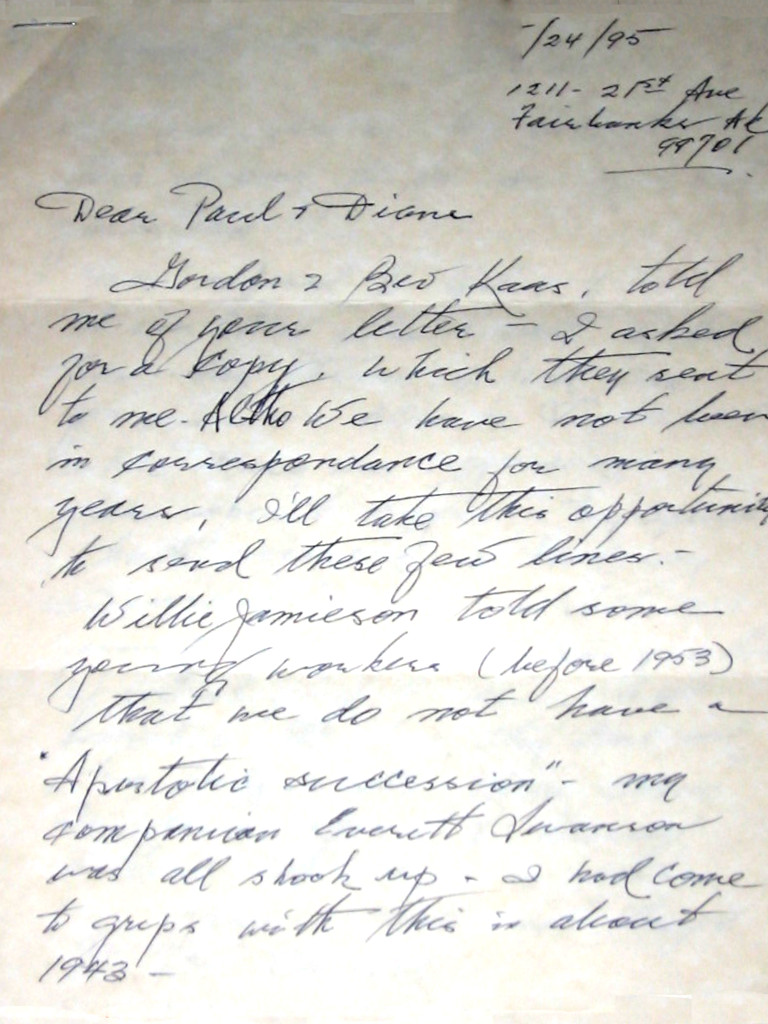 /24/95
1211- 21st Ave
Fairbanks Ak
99701
Dear Paul & Diane
Gordon & Bev Kaas, told
me of your letter - I asked
for a copy, which they sent
to me. Altho We have not been
in correspondance for many
years, I'll take this opportunity
to send these few lines.-
Willie Jamieson told some
young workers (before 1953)
that we do not have a
"Apostolic succession" - my
companion Everett Swanson
was all shook up - I had come
to grips with this in about
1943 -